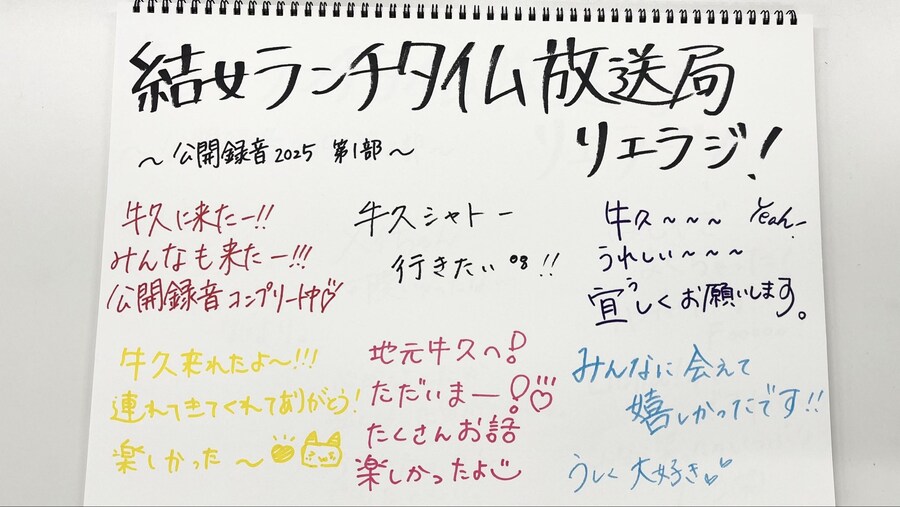 結女ランチタイム放送局
リエラジ!
〜公開録音2025 第1部〜
牛久に来たー!!
みんなも来たー!!!
公開録音コンプリート中♡
牛久シャトー
行きたい!!
牛久〜〜〜 Yeah〜
うれしい〜〜〜
宜うしくお願いします。
牛久来れたよ〜!!!
連れてきてくれてありがとう!
楽しかった〜
地元牛久へ!
ただいまー!♡
たくさんお話
楽しかったよ
みんなに会えて
嬉しかったです!!
うしく大好き♡